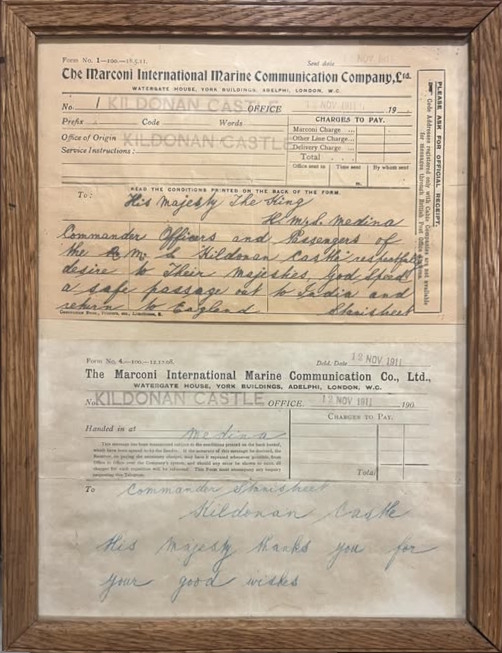 Form No. 1—100.—18.5.11.
Sent date NOV 1911
The Marconi International Marine Communication Company, Ltd.
WATERGATE HOUSE, YORK BUILDINGS, ADELPHI, LONDON, W.C.
No. 1 KILDONAN CASTLE OFFICE 12 NOV 1911 19
Prefix Code Words
CHARGES TO PAY.
Marconi Charge ...
Office of Origin KILDONAN CASTLE
Other Line Charge
Delivery Charge ...
Service Instructions:
Total
Office sent to Time sent By whom sent
m.
PLEASE ASK FOR OFFICIAL RECEIPT.
Code Addresses registered only with Cable Companies are not available
for messages through British Post Office
READ THE CONDITIONS PRINTED ON THE BACK OF THE FORM.
To: His Majesty The King
H.M.S. Medina
Commander Officers and Passengers of
the R. M. S Kildonan Castle respectfully
desire to Their Majesties, God Speed
a safe passage out to India and
return to England Stanisheet
Form No. 4.—100.—12.12.08.
Deld. Date 12 NOV 1911
The Marconi International Marine Communication Co., Ltd.,
WATERGATE HOUSE, YORK BUILDINGS, ADELPHI, LONDON, W.C.
No. KILDONAN CASTLE OFFICE. 12 NOV 1911 190
CHARGES TO PAY.
Handed in at Medina
Total
To Commander Stanisheet
Kildonan Castle
His Majesty thanks you for
your good wishes